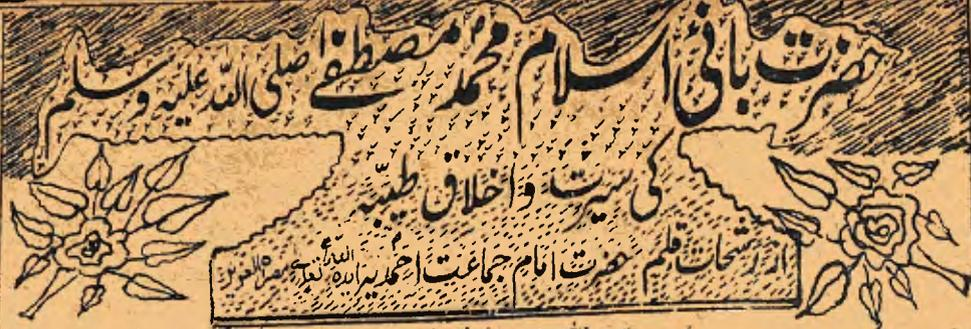 حضرت بانئ اسلام محمد مصطفےٰ صلی اللہ علیہ وسلم
کی سیرت و اخلاق طیبّہ
از رشحات قلم حضرت امام جماعت احمدیہ ایدہ اللہ تعالیٰ بنصرہ العزیز